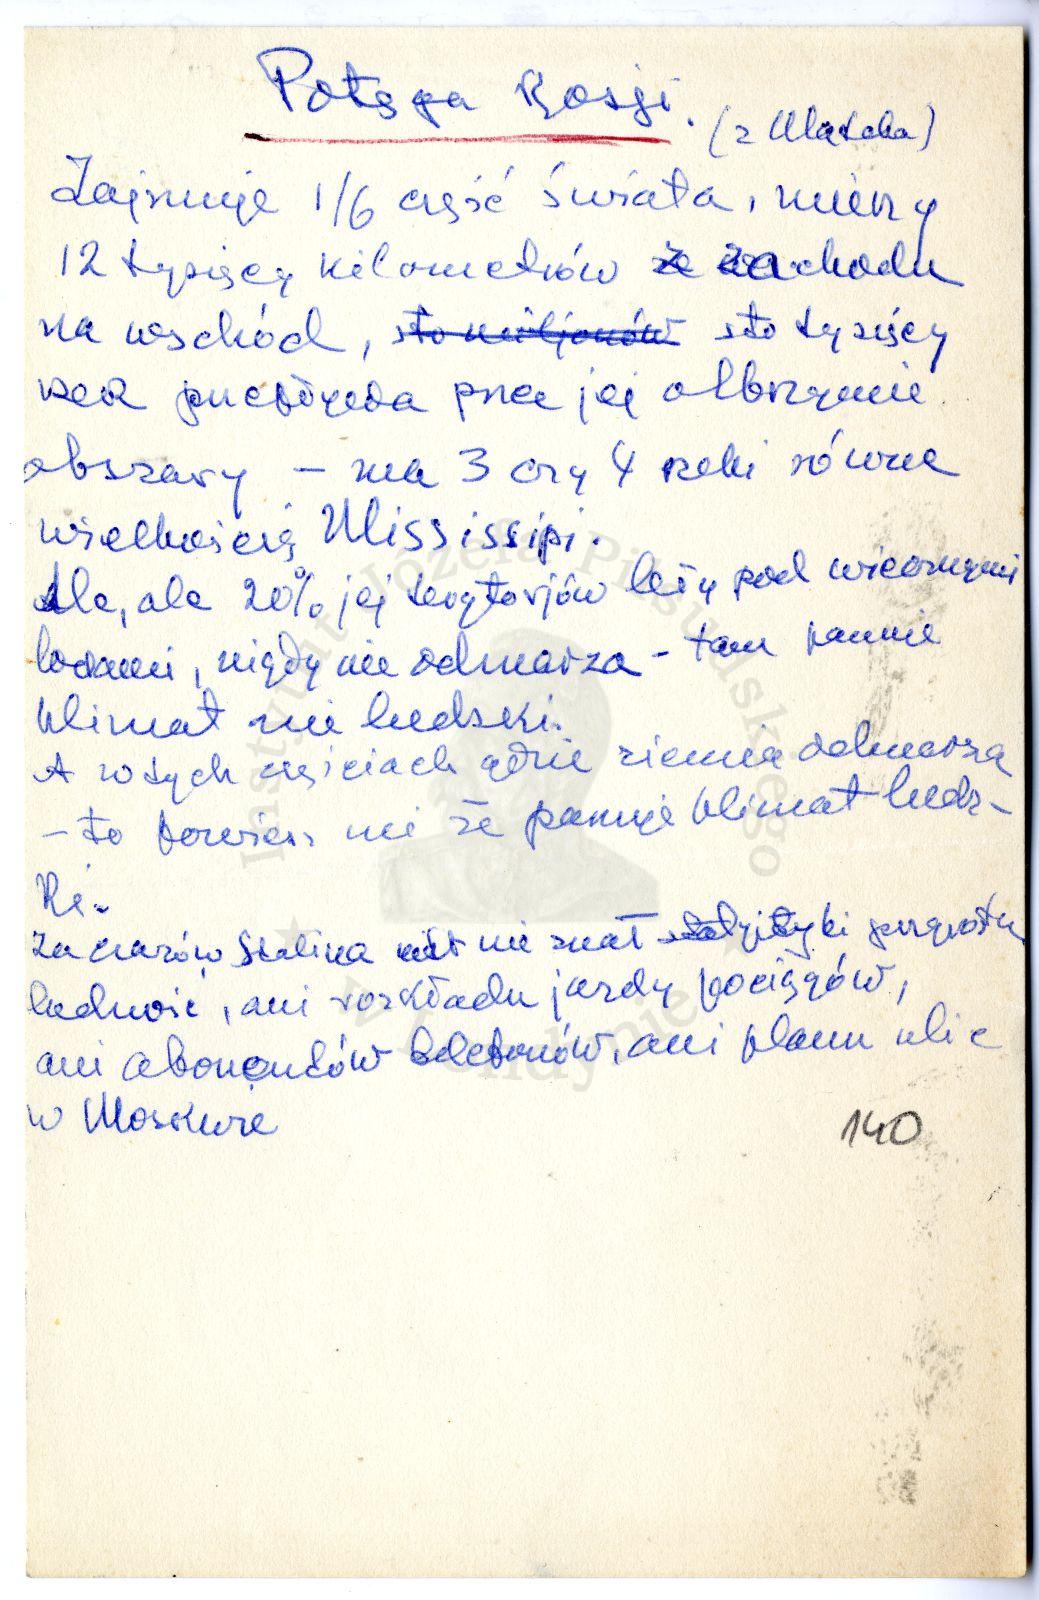 Potęga Rosji.
(z Ulatcha)
Zajmuje 1/6 część świata, mierzy
12 tysięcy kilometrów ze zachodu
na wschód, sto miljonów sto tysięcy
rzek przepływa przez jej olbrzymie
obszary – ma 3 czy 4 rzeki równe
wielkością Mississipi.
Ale, ale 20% jej terytorjów leży pod wiecznymi
lodami, nigdy nie odmarza – tam panuje
klimat nie ludzki.
A w tych częściach gdzie ziemia odmarza
– to powiem że panuje klimat ludz-
ki.
Za czasów Stalina nikt nie znał statystyki przyrostu
ludności, ani rozkładu jazdy pociągów,
ani abonentów telefonów, ani planu ulic
w Moskwie
140
Instytut Józefa Piłsudskiego
w Londynie